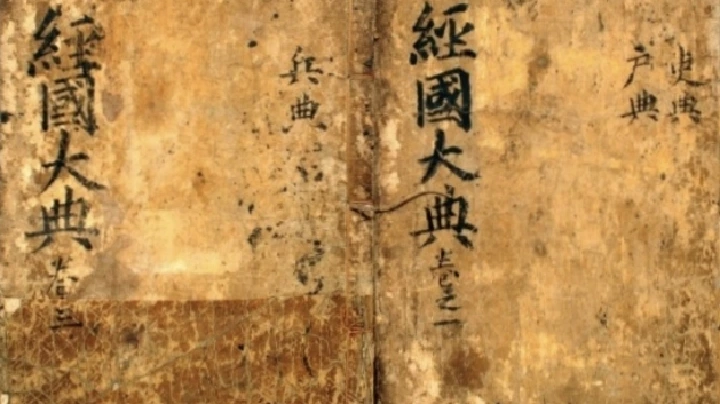 吏典
戶典
經國大典 卷之一
兵典
經國大典 卷三